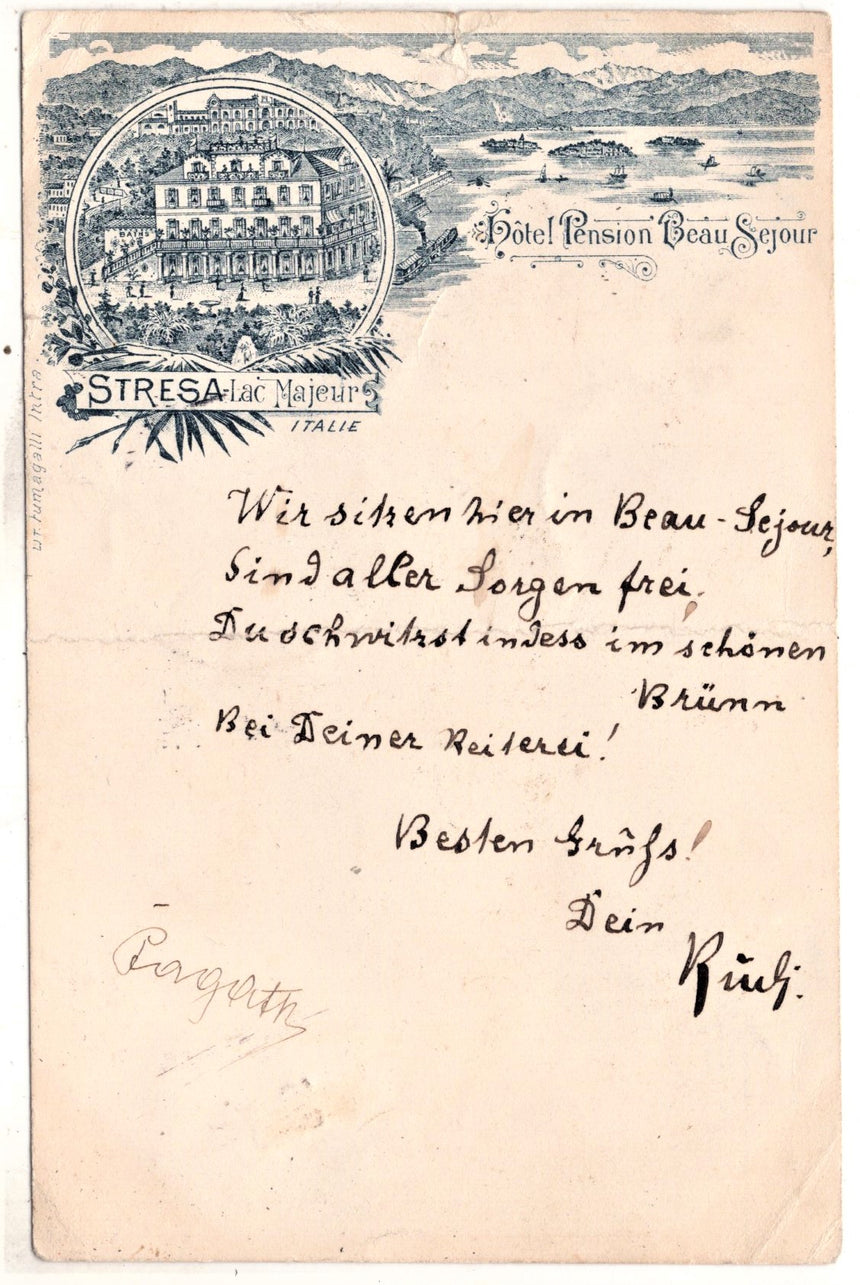 Hôtel Pension Beau Sejour
BATHS
STRESA-Lac Majeur
ITALIE
LIT. Fumagalli Intra
Wir sitzen hier in Beau-Sejour,
Sind aller Sorgen frei,
Du schwitzst indess im schönen
Brünn
Bei Deiner Reiterei!
Besten Grufs!
Dein
Rudi.